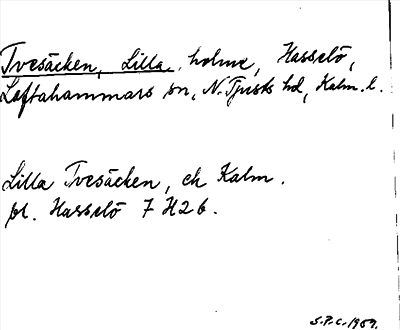 Tvesäcken, Lilla, holme, Hasselö,
Loftahammars sn, N. Tjusts hd, Kalm. l.
Lilla Tvesäcken, ek Kalm.
bl. Hasselö 7 H2b.
S.P.C. 1959.